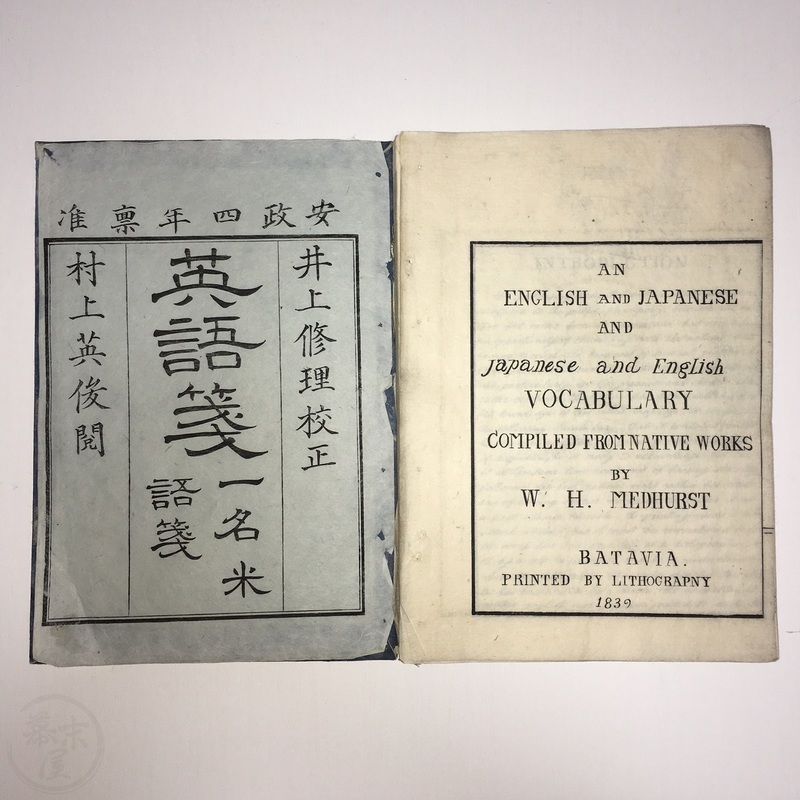 安政四年稟准
井上修理校正
英語箋
一名米
語箋
村上英俊閲
AN
ENGLISH AND JAPANESE
AND
Japanese and English
VOCABULARY
COMPILED FROM NATIVE WORKS
BY
W. H. MEDHURST
BATAVIA.
PRINTED BY LITHOGRAPNY
1839
幕末屋